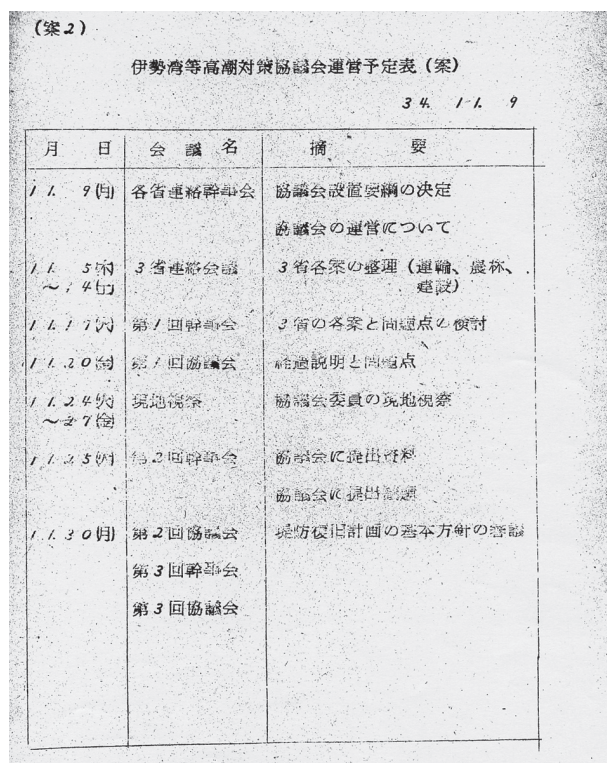 (案2)
伊勢湾等高潮対策協議会運営予定表(案)
34. 11. 9
月 日 会議名 摘要
11. 9(月) 各省連絡幹事会 協議会設置要綱の決定
協議会の運営について
11. 5(木) 3省連絡会議 3省各案の整理(運輸、農林、
~14(土) 建設)
11.17(火) 第1回幹事会 3省の各案と問題点の検討
11.20(金) 第1回協議会 経過説明と問題点
11.24(火) 現地視察 協議会委員の現地視察
~27(金)
11.25 第2回幹事会 協議会に提出資料
協議会に提出議題
11.30(月) 第2回協議会 堤防復旧計画の基本方針の審議
第3回幹事会
第3回協議会